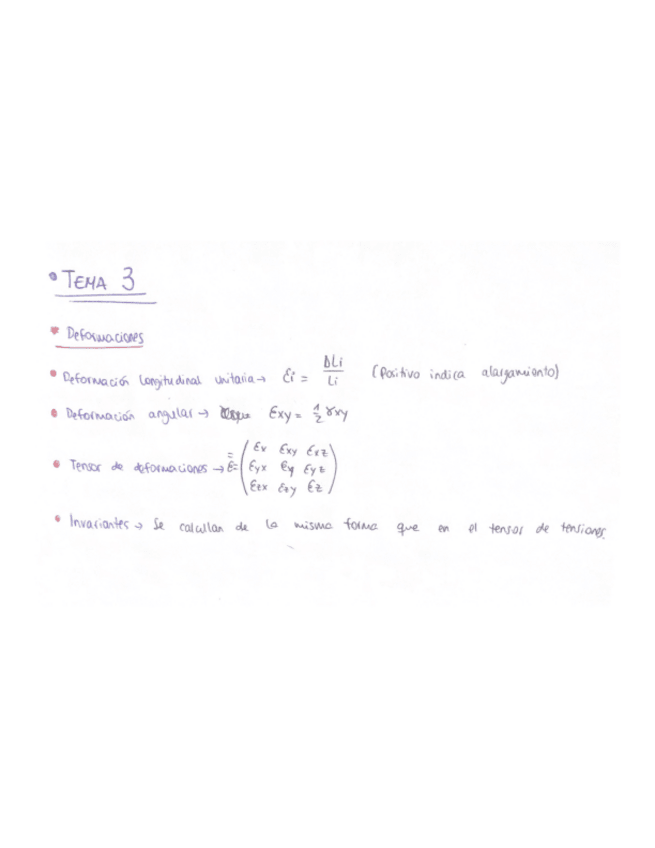 • TEMA 3
* Deformaciones
• Deformación longitudinal unitaria → εi = ΔLi / Li (Positivo indica alargamiento)
• Deformación angular → εxy = 1/2 γxy
εx εxy εxz
• Tensor de deformaciones → ε̿ = εyx εy εyz
εzx εzy εz
• Invariantes → Se calcullan de la misma forma que en el tensor de tensiones